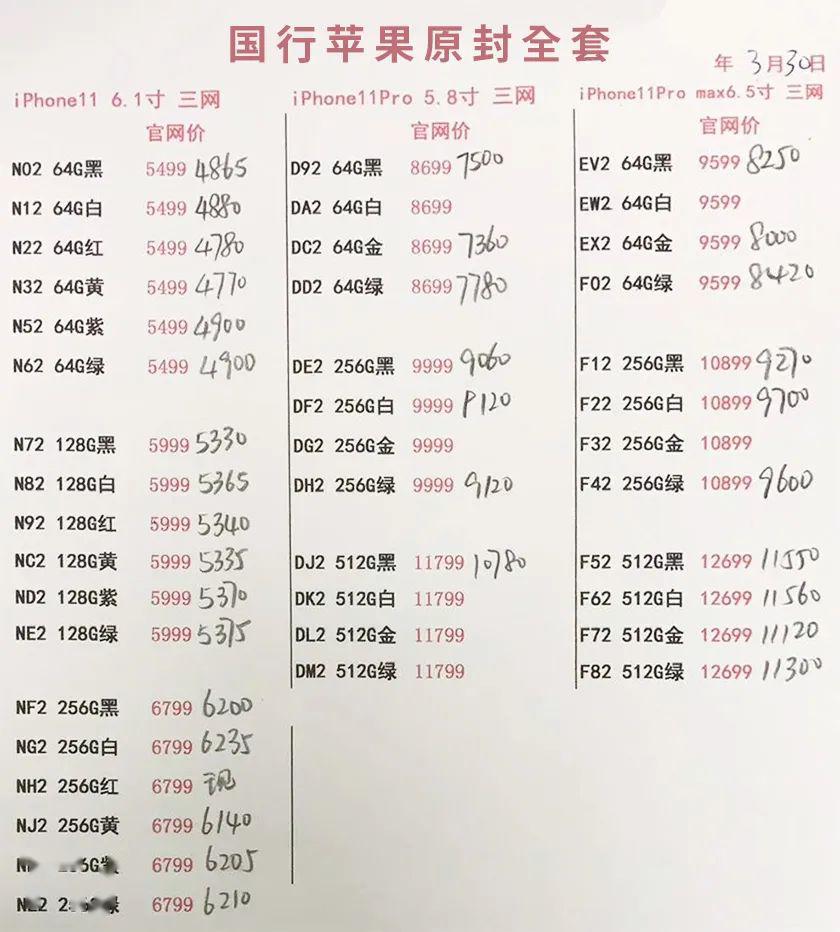 国行苹果原封全套
年 3月30日
iPhone11 6.1寸 三网
官网价
N02 64G黑 5499 4865
N12 64G白 5499 4880
N22 64G红 5499 4780
N32 64G黄 5499 4770
N52 64G紫 5499 4900
N62 64G绿 5499 4900
N72 128G黑 5999 5330
N82 128G白 5999 5365
N92 128G红 5999 5340
NC2 128G黄 5999 5335
ND2 128G紫 5999 5370
NE2 128G绿 5999 5375
NF2 256G黑 6799 6200
NG2 256G白 6799 6235
NH2 256G红 6799 现
NJ2 256G黄 6799 6140
6799 6205
6799 6210
iPhone11Pro 5.8寸 三网
官网价
D92 64G黑 8699 7500
DA2 64G白 8699
DC2 64G金 8699 7360
DD2 64G绿 8699 7780
DE2 256G黑 9999 9060
DF2 256G白 9999 9120
DG2 256G金 9999
DH2 256G绿 9999 9120
DJ2 512G黑 11799 10780
DK2 512G白 11799
DL2 512G金 11799
DM2 512G绿 11799
iPhone11Pro max6.5寸 三网
官网价
EV2 64G黑 9599 8250
EW2 64G白 9599
EX2 64G金 9599 8000
F02 64G绿 9599 8420
F12 256G黑 10899 9270
F22 256G白 10899 9700
F32 256G金 10899
F42 256G绿 10899 9600
F52 512G黑 12699 11550
F62 512G白 12699 11560
F72 512G金 12699 11120
F82 512G绿 12699 11300